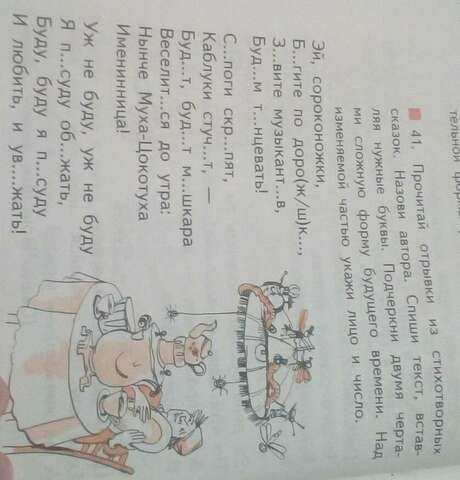 тельной форме
41. Прочитай отрывки из стихотворных
сказок. Назови автора. Спиши текст, встав-
ляя нужные буквы. Подчеркни двумя черта-
ми сложную форму будущего времени. Над
изменяемой частью укажи лицо и число.
Эй, сороконожки,
Б...гите по доро(ж/ш)к...,
З...вите музыкант...в,
Буд...м т...нцевать!
С...поги скр...пят,
Каблуки стуч...т, —
Буд...т, буд...т м...шкара
Веселит...ся до утра:
Нынче Муха-Цокотуха
Именинница!
Уж не буду, уж не буду
Я п...суду об...жать,
Буду, буду я п...суду
И любить, и ув....жать!